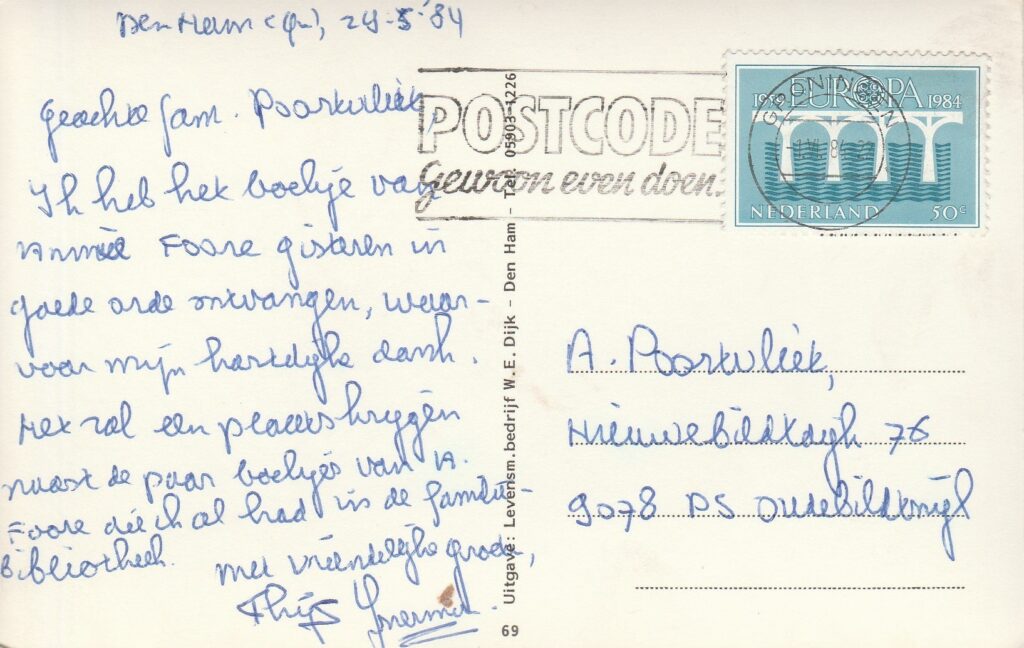 Den Ham (Gn), 29-5-'84
Geachte fam. Poortvliet,
Ik heb het boekje van
Annie Foore gisteren in
goede orde ontvangen, waar-
voor mijn hartelijke dank.
Het zal een plaats krijgen
naast de paar boekjes van A.
Foore die ik al had in de familie-
bibliotheek.
Met vriendelijke groeten,
Thijs
POSTCODE
Gewoon even doen.
GRONINGEN
1959 EUROPA 1984
NEDERLAND 50c
Uitgave: Levensm.bedrijf W.E. Dijk - Den Ham - Tel. 05903-1226
69
A. Poortvliet,
Nieuwebildtdijk 76
9078 PS Oudebildtzijl